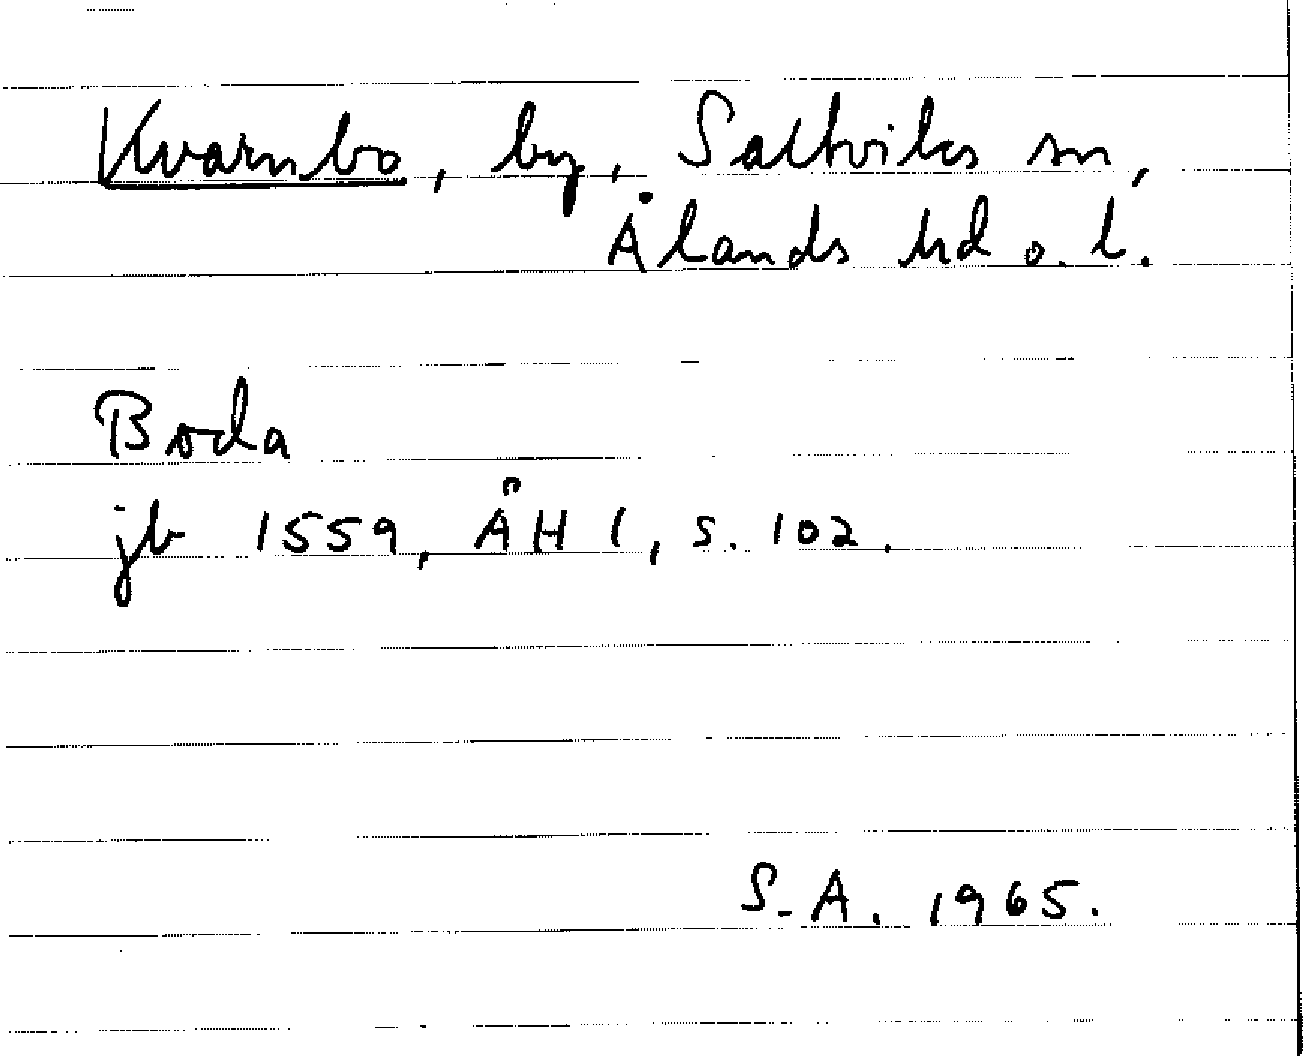 Kvarnbo, by, Saltviks sn,
Ålands hd o. l.
Boda
jb 1559, ÅH 1, s. 102.
S-A. 1965.